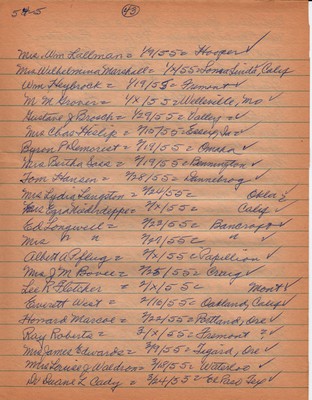 5-5 43
Mrs. Wm Lallman = 1/9/55 = Hooper ✓
Mrs Wilhelmina Marshall = 1/x/55 = Loma Linda, Calif
Wm Heybrock = 1/19/55 = Fremont ✓
M. M. Groner = 1/x/55 = Wellsville, Mo ✓
Gustave J Brosch = 1/29/55 = Valley ✓
Mrs Chas Heslip = 2/10/55 = Essex, Ia ✓
Byron P Demorest = 2/19/55 = Omaha ✓
Mrs Bertha = 2/19/55 = Bennington ✓
Tom Hansen = 2/25/55 = Dannebrog ✓
Mrs Lydia Langston = 2/24/55 = Okla ✓
Mrs Ezra = 2/x/55 = Calif ✓
Ed Longwell = 2/23/55 = Bancroft ✓
Mrs " " = 2/29/55 = " ✓
Albert A Pflug = 2/x/55 = Papillion ✓
Mrs J. M. = 2/25/55 = Craig ✓
Lee R Fletcher = 2/1x/55 = Mont ✓
Everett West = 2/10/55 = Oakland, Calif ✓
Howard Marcoe = 2/22/55 = Portland, Ore ✓
Ray Roberts = 3/1x/55 = Fremont ? ✓
Mrs James Edwards = 3/9/55 = Tigard, Ore ✓
Mrs Louise J Waldron = 3/19/55 = Waterloo ✓
Dr Duane L Cady = 3/24/55 = El Paso Tex ✓